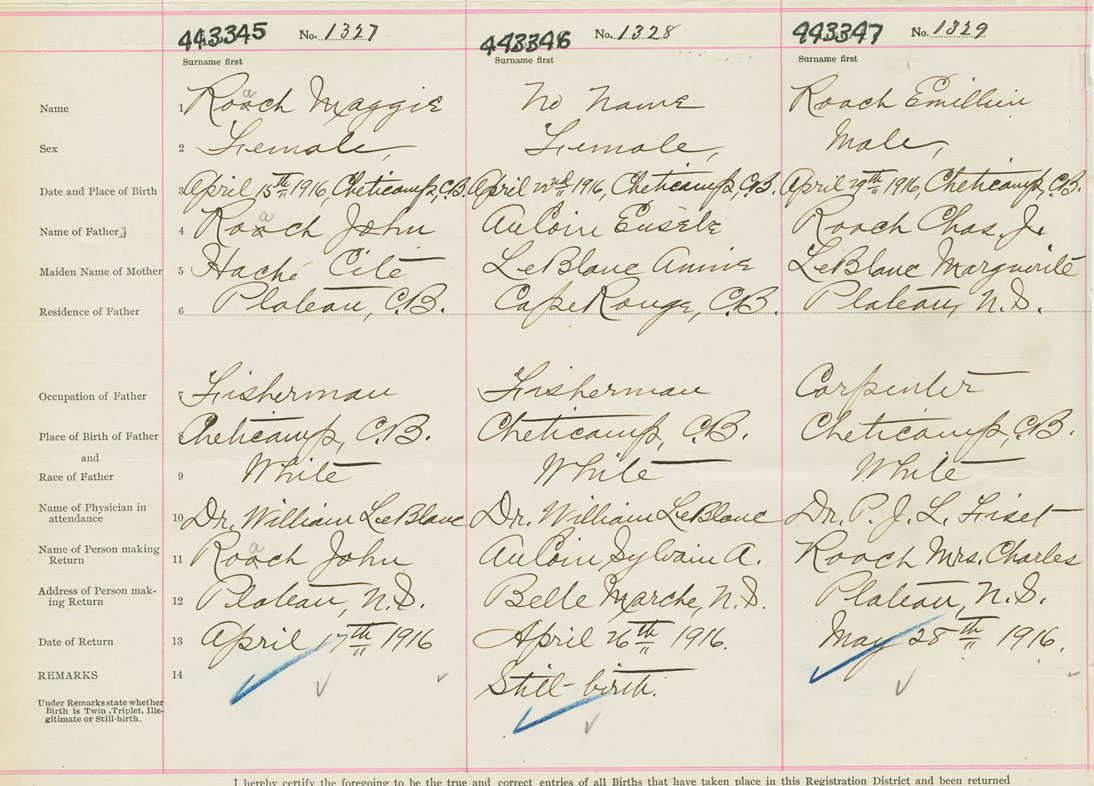 443345 No. 1327 443346 No. 1328 443347 No. 1329
Surname first Surname first Surname first
Name 1 Roach Maggie No Name Roach Emillien
Sex 2 Female, Female, Male,
Date and Place of Birth 3 April 15th 1916, Cheticamp, C.B. April 22nd 1916, Cheticamp, C.B. April 29th 1916, Cheticamp, C.B.
Name of Father 4 Roach John AuCoin Eusèbe Roach Chas. J.
Maiden Name of Mother 5 Haché Cité LeBlanc Annie LeBlanc Marguerite
Residence of Father 6 Plateau, C.B. Cape Rouge, C.B. Plateau, N.S.
Occupation of Father Fisherman Fisherman Carpenter
Place of Birth of Father Cheticamp, C.B. Cheticamp, C.B. Cheticamp, C.B.
and
Race of Father 9 White White White
Name of Physician in
attendance 10 Dr. William LeBlanc Dr. William LeBlanc Dr. P. J. L. Fiset
Name of Person making
Return 11 Roach John AuCoin Sylvain A. Roach Mrs. Charles
Address of Person mak-
ing Return 12 Plateau, N.S. Belle Marche, N.S. Plateau, N.S.
Date of Return 13 April 17th 1916 April 26th 1916. May 28th 1916.
REMARKS 14 Still-birth.
Under Remarks state whether
Birth is Twin, Triplet, Ille-
gitimate or Still-birth.
I hereby certify the foregoing to be the true and correct entries of all Births that have taken place in this Registration District and been returned